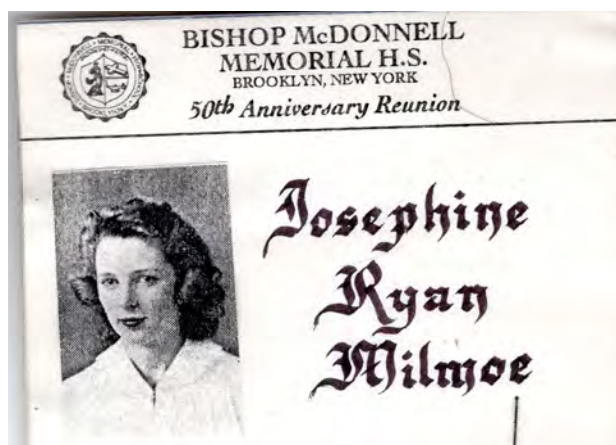 BISHOP McDONNELL
MEMORIAL H.S.
BROOKLYN, NEW YORK
50th Anniversary Reunion
Josephine
Ryan
Milmoe